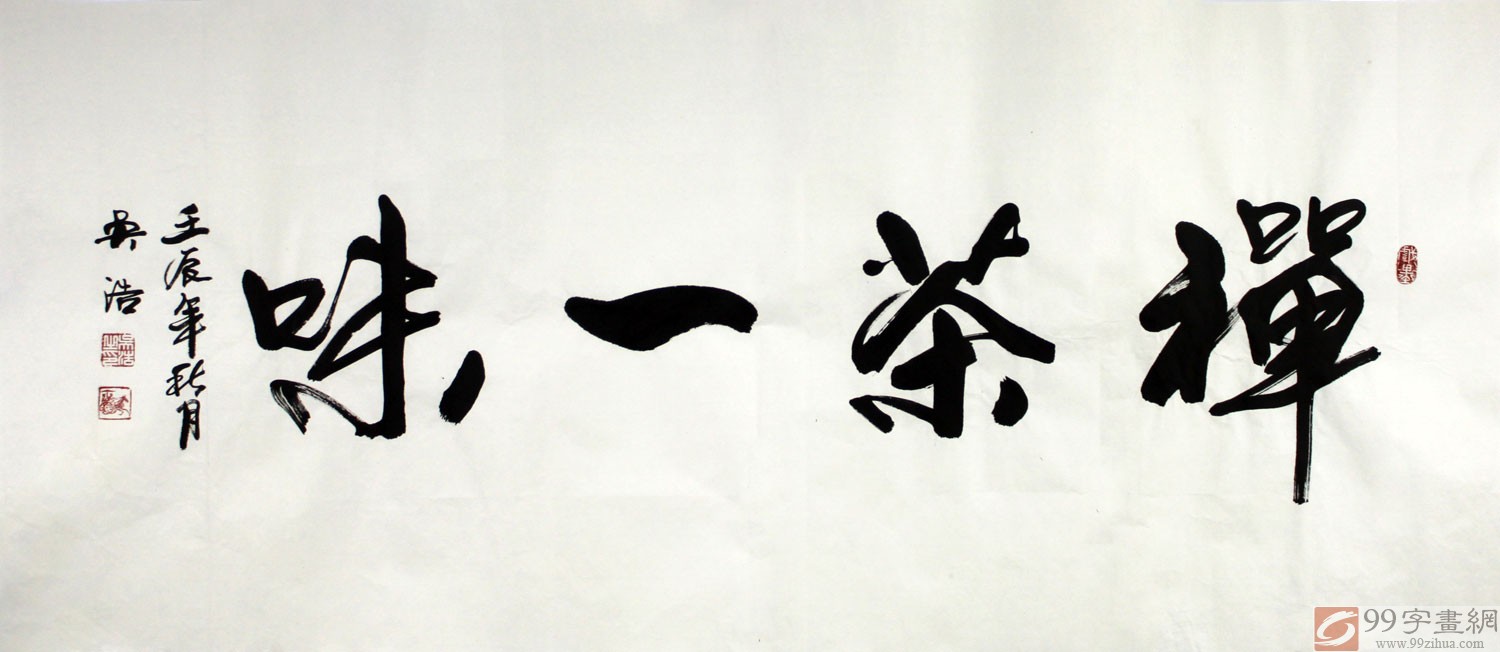 禪茶一味
壬辰年秋月
吴浩
99字畫網
www.99zihua.com